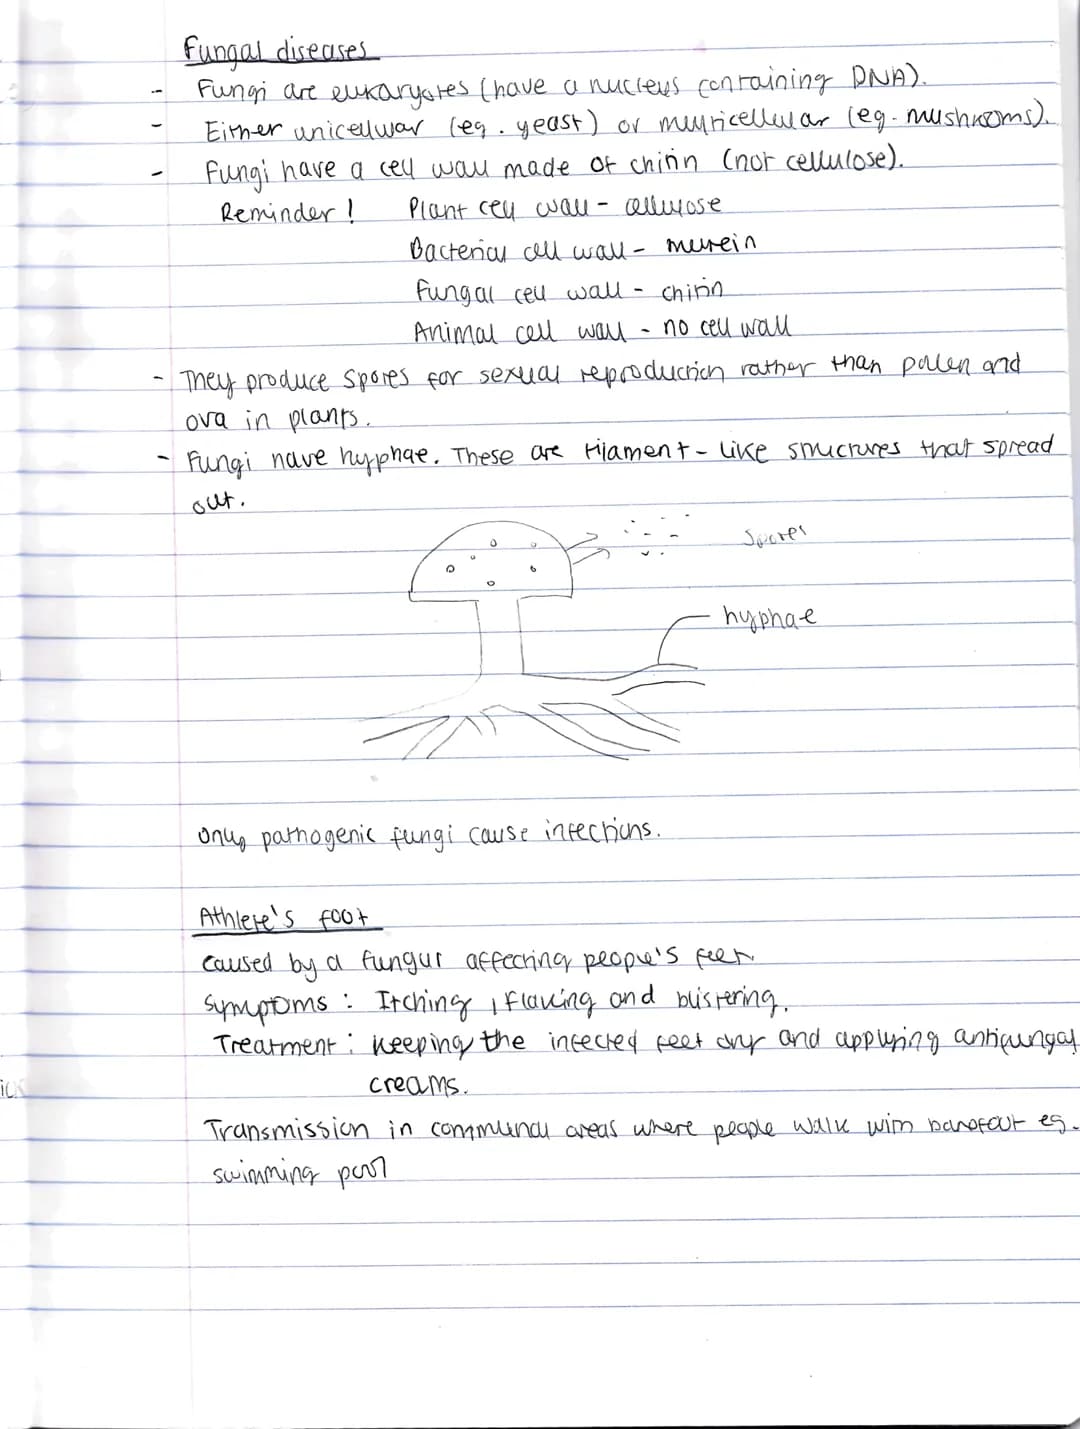 Fungal diseases
- Fungi are eukaryotes (have a nucleus containing DNA).
- Either unicellular (eg. yeast) or multicellular (eg. mushrooms).
- Fungi have a cell wall made of chitin (not cellulose).
Reminder! Plant cell wall - cellulose
Bacterial cell wall - murein
Fungal cell wall - chitin
Animal cell wall - no cell wall
- They produce spores for sexual reproduction rather than pollen and
ova in plants.
- Fungi have hyphae. These are filament-like structures that spread
out.
Spores
hyphae
Only pathogenic fungi cause infections.
Athlete's foot
Caused by a fungus affecting people's feet.
Symptoms: Itching, flaking and blistering.
Treatment: Keeping the infected feet dry and applying antifungal
creams.
Transmission in communal areas where people walk with barefoot eg.
swimming pool